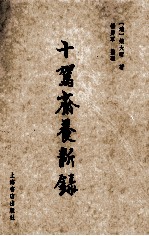 [清] 錢大昕 著
楊勇軍 整理
十駕齋養新錄
上海書店出版社